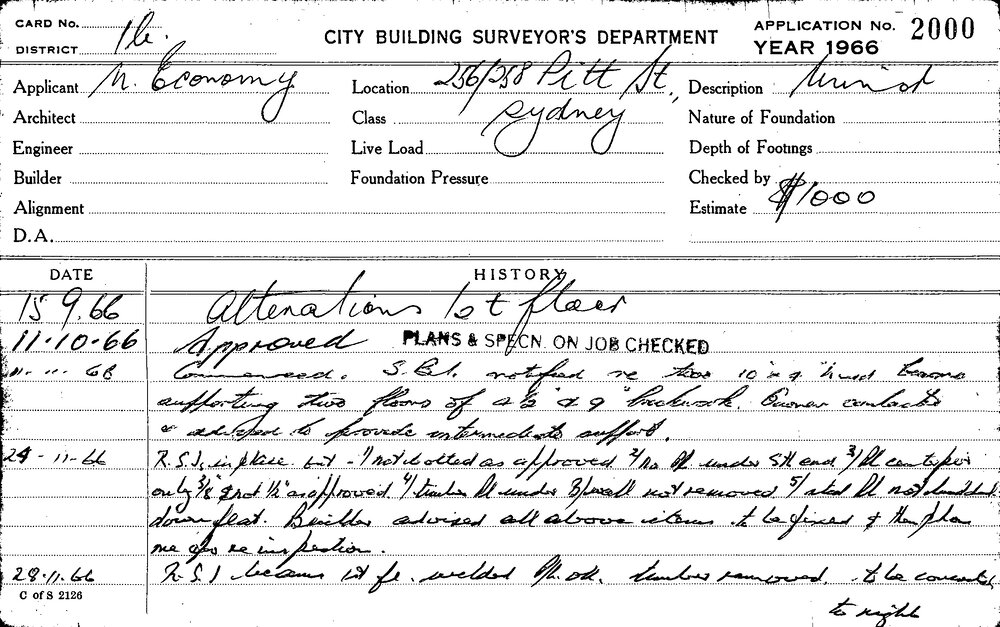 CARD No. 16.
DISTRICT
CITY BUILDING SURVEYOR'S DEPARTMENT
APPLICATION No. 2000
YEAR 1966
Applicant N. Economy
Location 256/258 Pitt St.,
Description
Architect
Class Sydney
Nature of Foundation
Engineer
Live Load
Depth of Footings
Builder
Foundation Pressure
Checked by
Alignment
Estimate $1000
D.A.
DATE HISTORY
15 9.66 Alterations 1st floor
11-10-66 Approved PLANS & SPECN. ON JOB CHECKED
11. 11. 66 Commenced. S.B.I. notified re two 10" x 4" beams
supporting two floors of 4½" & 9" brickwork. Owner
& advised to provide intermediate support.
24-11-66 R.S.Js in place but - 1/ not bolted as approved 2/ No Pl. under Sth end 3/ Pl
only 3/8" & not ½" as approved 4/ timber Pl under wall not removed 5/ Pl not
down flat. Builder advised all above items to be fixed & then phone
me for reinspection.
28.11.66 R.S.J beams 1st fl. welded Pl. ok. timber removed. to be
to right
C of S 2126